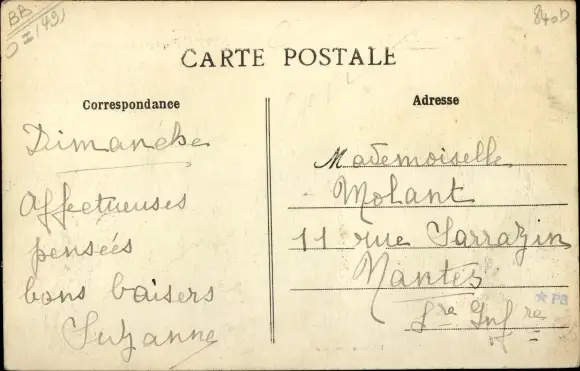 BB
8400
CARTE POSTALE
Correspondance
Dimanche
Affectueuses
pensées
bons baisers
Suzanne
Adresse
Mademoiselle
Molant
11 rue Sarrazin
Nantes
Lre Infre
PB